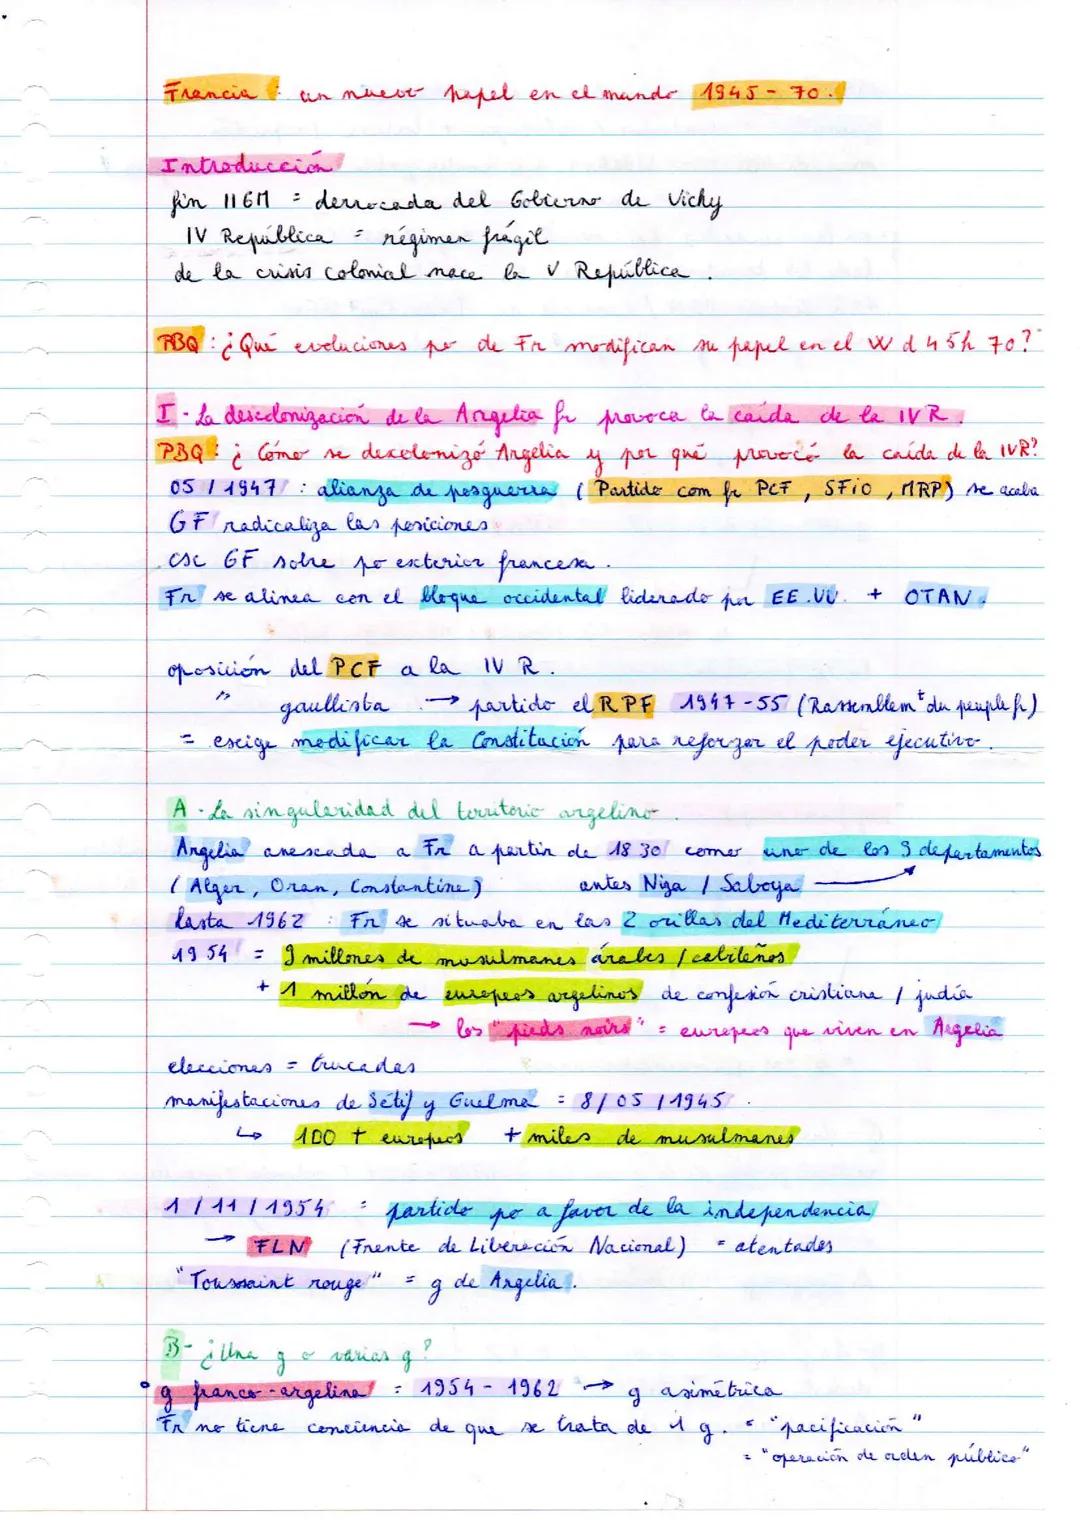 Francia : un nuevo papel en el mundo 1945-70.
Introducción
fin IIGM = derrocada del Gobierno de Vichy
IV República = régimen frágil
de la crisis colonial nace la V República.
PBQ : ¿Qué evoluciones po de Fr modifican su papel en el W d 45h 70?
I - La descolonización de la Argelia fr provoca la caída de la IV R.
PBQ : ¿Cómo se descolonizó Argelia y por qué provocó la caída de la IVR?
05/1947 : alianza de posguerra (Partido com fr PCF, SFiO, MRP) se acaba
GF radicaliza las posiciones
csc GF sobre po exterior francesa.
Fr se alinea con el bloque occidental liderado por EE.UU. + OTAN.
oposición del PCF a la IV R.
" gaullista → partido el RPF 1947-55 (Rassemblemt du peuple fr)
= exige modificar la Constitución para reforzar el poder ejecutivo.
A - La singularidad del territorio argelino.
Argelia anexada a Fr a partir de 1830 como uno de los 3 departamentos
(Alger, Oran, Constantine) antes Niza / Saboya
hasta 1962 : Fr se situaba en las 2 orillas del Mediterráneo
1954 = 9 millones de musulmanes árabes / cabileños
+ 1 millón de europeos argelinos de confesión cristiana / judía
→ los "pieds noirs" = europeos que viven en Argelia
elecciones = trucadas
manifestaciones de Sétif y Guelma = 8/05/1945.
↳ 100 + europeos + miles de musulmanes
1/11/1954 = partido po a favor de la independencia
→ FLN (Frente de Liberación Nacional) = atentados
"Toussaint rouge" = g de Argelia.
B - ¿Una g o varias g?
g franco-argelina = 1954-1962 → g asimétrica
Fr no tiene conciencia de que se trata de 1 g. = "pacificación"
= "operación de orden público"